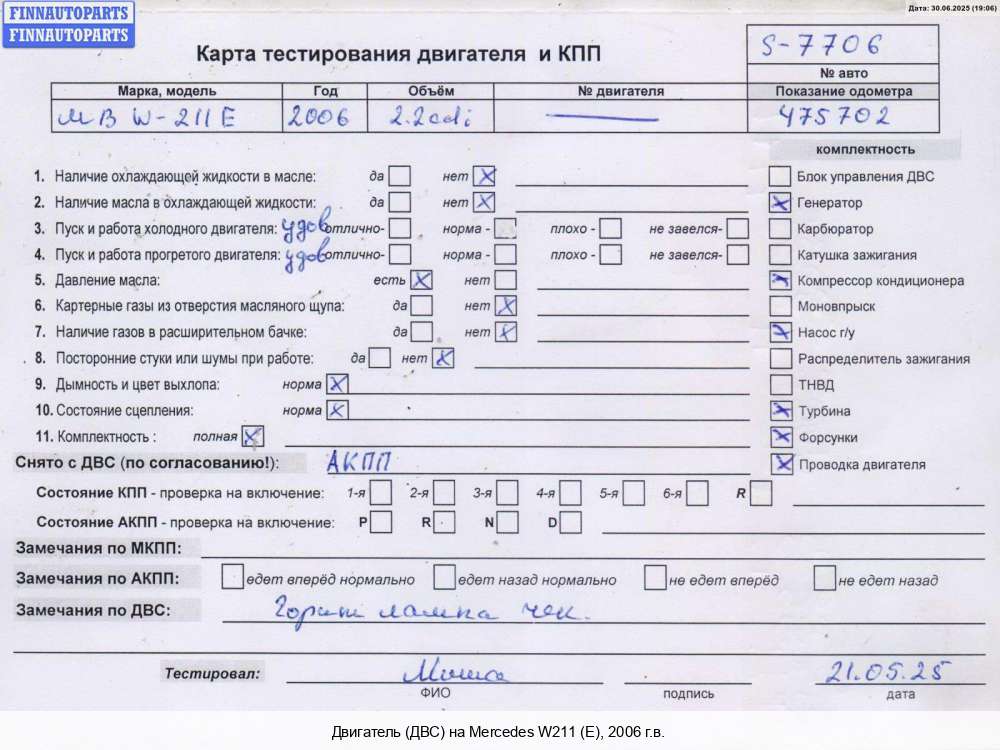 FINNAUTOPARTS
FINNAUTOPARTS
Дата: 30.06.2025 (19:06)
Карта тестирования двигателя и КПП
S-7706
№ авто
Марка, модель Год Объём № двигателя Показание одометра
МВ W-211 E 2006 2.2cdi — 475702
комплектность
1. Наличие охлаждающей жидкости в масле: да нет
Блок управления ДВС
2. Наличие масла в охлаждающей жидкости: да нет
Генератор
3. Пуск и работа холодного двигателя: удов отлично- норма - плохо - не завелся-
Карбюратор
4. Пуск и работа прогретого двигателя: удов отлично- норма - плохо - не завелся-
Катушка зажигания
5. Давление масла: есть нет
Компрессор кондиционера
6. Картерные газы из отверстия масляного щупа: да нет
Моновпрыск
7. Наличие газов в расширительном бачке: да нет
Насос г/у
8. Посторонние стуки или шумы при работе: да нет
Распределитель зажигания
9. Дымность и цвет выхлопа: норма
ТНВД
10. Состояние сцепления: норма
Турбина
11. Комплектность : полная
Форсунки
Снято с ДВС (по согласованию!): АКПП
Проводка двигателя
Состояние КПП - проверка на включение: 1-я 2-я 3-я 4-я 5-я 6-я R
Состояние АКПП - проверка на включение: P R N D
Замечания по МКПП:
Замечания по АКПП: едет вперёд нормально едет назад нормально не едет вперёд не едет назад
Замечания по ДВС: Горит лампа чек.
Тестировал: Миша 21.05.25
ФИО подпись дата
Двигатель (ДВС) на Mercedes W211 (E), 2006 г.в.